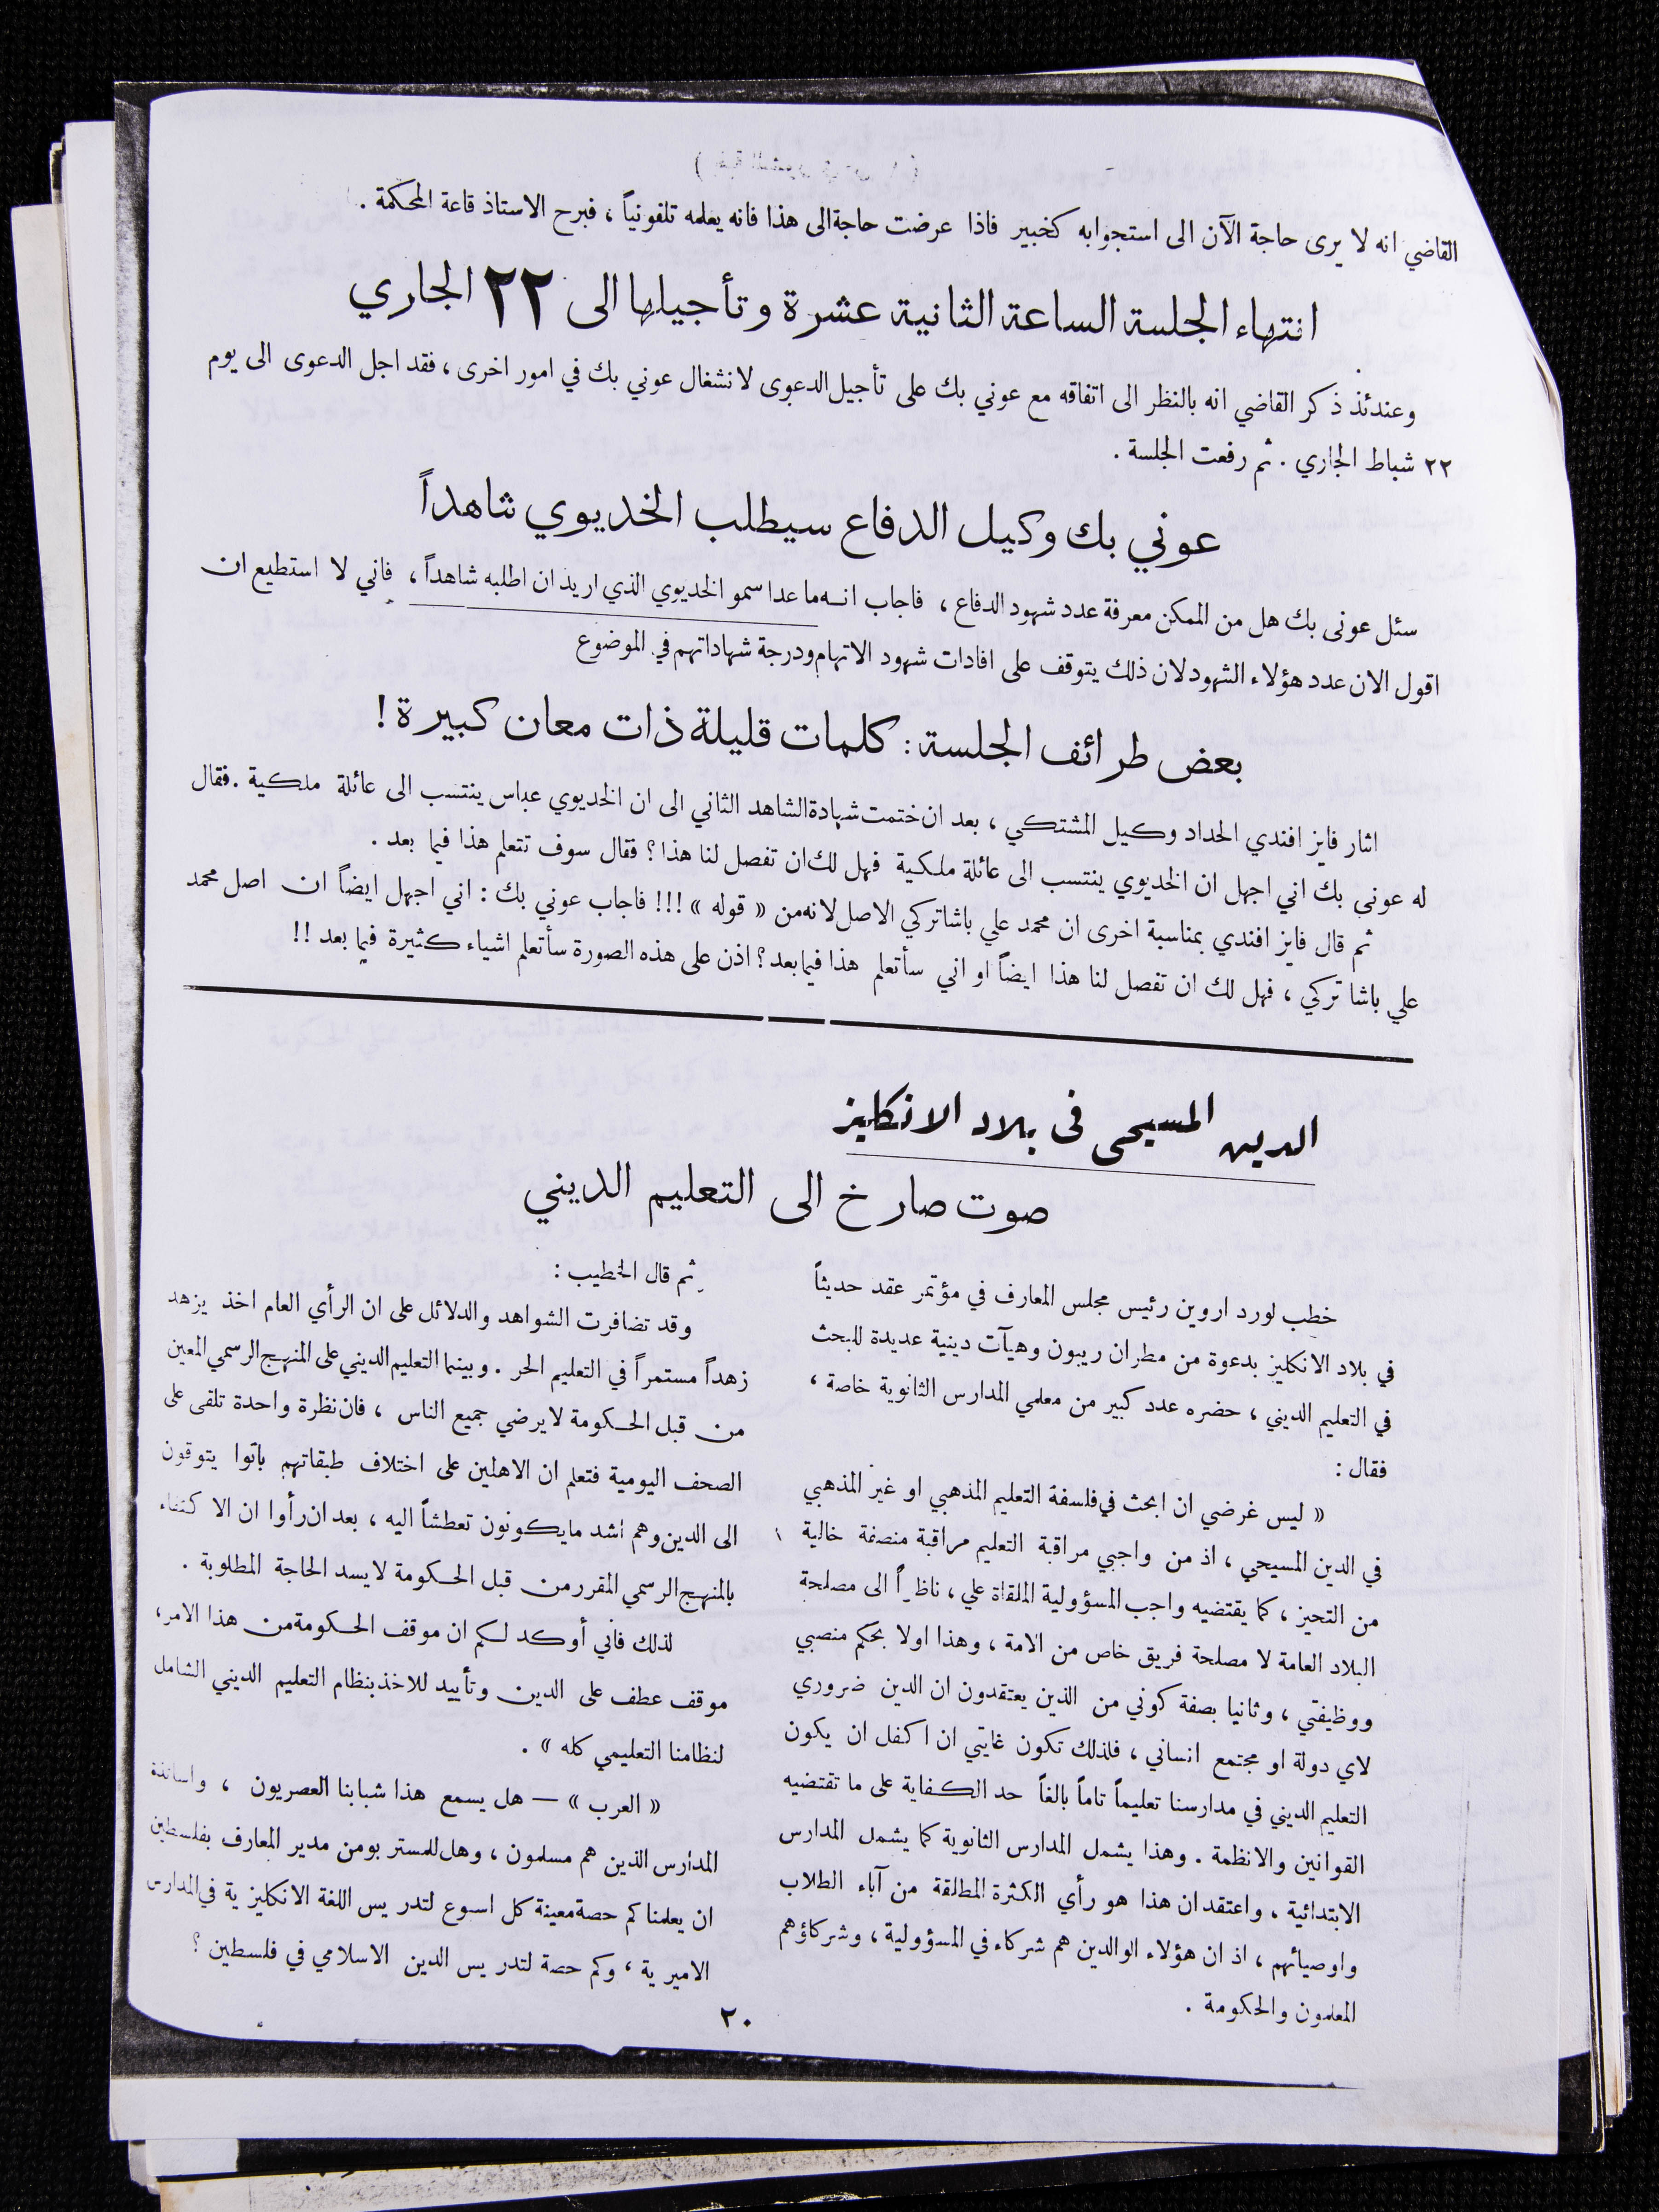 القاضي انه لا يرى حاجة الآن الى استجوابه كخبير فاذا عرضت حاجة الى هذا فانه يعلمه تلفونياً ، فبرح الاستاذ قاعة المحكمة .
انتهاء الجلسة الساعة الثانية عشرة وتأجيلها الى ٢٢ الجاري
وعندئذ ذكر القاضي انه بالنظر الى اتفاقه مع عوني بك على تأجيل الدعوى لانشغال عوني بك في امور اخرى ، فقد اجل الدعوى الى يوم
٢٢ شباط الجاري . ثم رفعت الجلسة .
عوني بك وكيل الدفاع سيطلب الخديوي شاهداً
سئل عونى بك هل من الممكن معرفة عدد شهود الدفاع ، فاجاب انه ماعدا سمو الخديوي الذي اريد ان اطلبه شاهداً ، فاني لا استطيع ان
اقول الان عدد هؤلاء الشهود لان ذلك يتوقف على افادات شهود الاتهام ودرجة شهاداتهم في الموضوع
بعض طرائف الجلسة : كلمات قليلة ذات معان كبيرة !
اثار فايز افندي الحداد وكيل المشتكي ، بعد ان ختمت شهادة الشاهد الثاني الى ان الخديوي عباس ينتسب الى عائلة ملكية . فقال
له عوني بك اني اجهل ان الخديوي ينتسب الى عائلة ملكية فهل لك ان تفصل لنا هذا ؟ فقال سوف تتعلم هذا فيما بعد .
ثم قال فايز افندي بمناسبة اخرى ان محمد علي باشا تركي الاصل لانه من « قوله » !!! فاجاب عوني بك : اني اجهل ايضاً ان اصل محمد
علي باشا تركي ، فهل لك ان تفصل لنا هذا ايضاً او اني سأتعلم هذا فيما بعد ؟ اذن على هذه الصورة سأتعلم اشياء كثيرة فيما بعد !!
الدين المسيحي في بلاد الانكليز
صوت صارخ الى التعليم الديني
خطب لورد اروين رئيس مجلس المعارف في مؤتمر عقد حديثاً
في بلاد الانكليز بدعوة من مطران ريبون وهيآت دينية عديدة للبحث
في التعليم الديني ، حضره عدد كبير من معلمي المدارس الثانوية خاصة ،
فقال :
« ليس غرضي ان ابحث في فلسفة التعليم المذهبي او غير المذهبي
في الدين المسيحي ، اذ من واجبي مراقبة التعليم مراقبة منصفة خالية
من التحيز ، كما يقتضيه واجب المسؤولية الملقاة علي ، ناظراً الى مصلحة
البلاد العامة لا مصلحة فريق خاص من الامة ، وهذا اولا بحكم منصبي
ووظيفتي ، وثانيا بصفة كوني من الذين يعتقدون ان الدين ضروري
لاي دولة او مجتمع انساني ، فلذلك تكون غايتي ان اكفل ان يكون
التعليم الديني في مدارسنا تعليماً تاماً بالغاً حد الكفاية على ما تقتضيه
القوانين والانظمة . وهذا يشمل المدارس الثانوية كما يشمل المدارس
الابتدائية ، واعتقد ان هذا هو رأي الكثرة المطلقة من آباء الطلاب
واوصيائهم ، اذ ان هؤلاء الوالدين هم شركاء في المسؤولية ، وشركاؤهم
المعلمون والحكومة .
ثم قال الخطيب :
وقد تضافرت الشواهد والدلائل على ان الرأي العام اخذ يزهد
زهداً مستمراً في التعليم الحر . وبينما التعليم الديني على المنهج الرسمي المعين
من قبل الحكومة لا يرضي جميع الناس ، فان نظرة واحدة تلقى على
الصحف اليومية فتعلم ان الاهلين على اختلاف طبقاتهم باتوا يتوقون
الى الدين وهم اشد ما يكونون تعطشاً اليه ، بعد ان رأوا ان الا كتفاء
بالمنهج الرسمي المقرر من قبل الحكومة لا يسد الحاجة المطلوبة .
لذلك فاني أوكد لكم ان موقف الحكومة من هذا الامر،
موقف عطف على الدين وتأييد للاخذ بنظام التعليم الديني الشامل
لنظامنا التعليمي كله » .
« العرب » — هل يسمع هذا شبابنا العصريون ، واساتذة
المدارس الذين هم مسلمون ، وهل للمستر بومن مدير المعارف بفلسطين
ان يعلمنا كم حصة معينة كل اسبوع لتدريس اللغة الانكليزية في المدارس
الاميرية ، وكم حصة لتدريس الدين الاسلامي في فلسطين ؟
٢٠